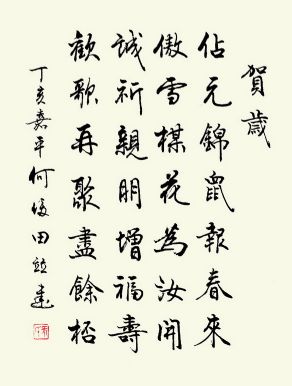 賀歲
佔元錦鼠報春來
傲雪楳花為汝開
誠祈親朋增福壽
歡歌再聚盡餘桮
丁亥嘉平何田